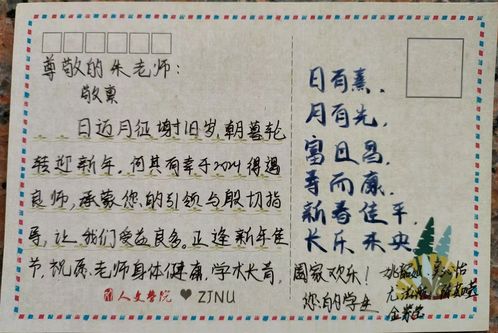 尊敬的朱老师：
敬禀
日迈月征辞旧岁，朝暮轮
转迎新年。何其有幸于2024得遇
良师，承蒙您的引领与殷切指
导，让我们受益良多。正逢新年佳
节，祝愿老师身体健康，学术长青，
阖家欢乐！
您的学生
人文学院 ZJNU
日有熹，
月有光，
富且昌，
寿而康，
新春佳平，
长乐未央